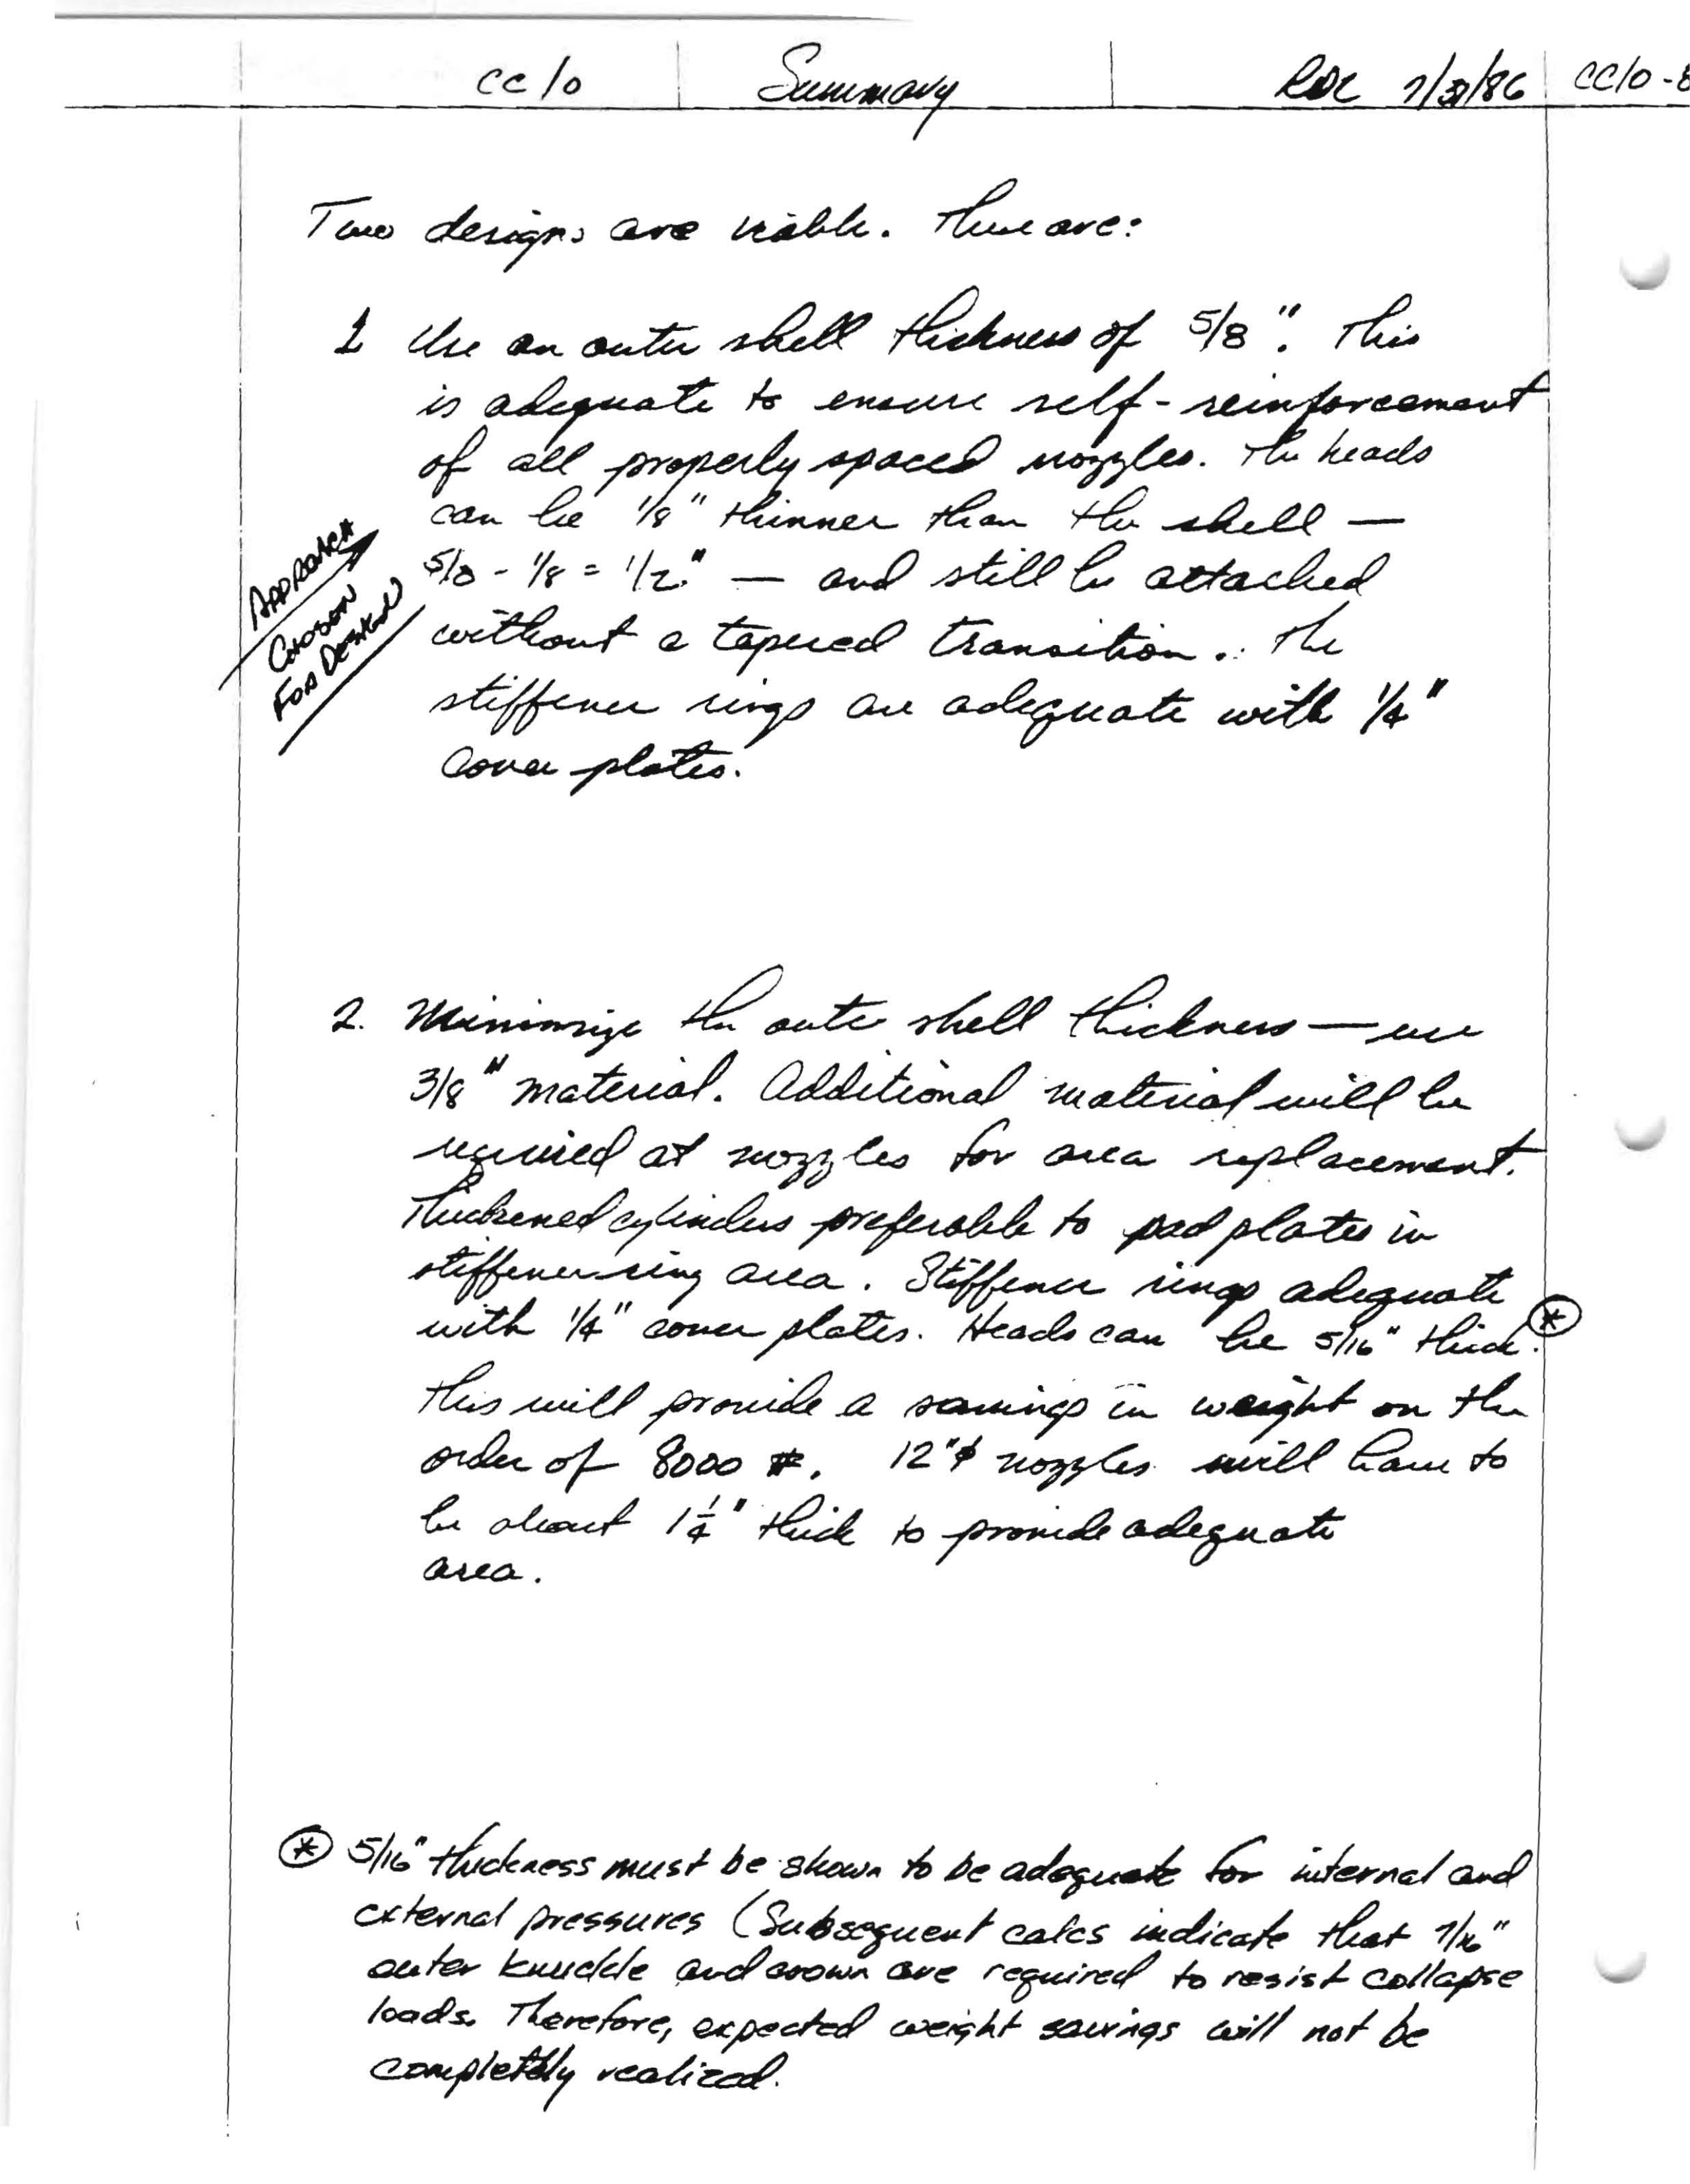 CC10 Summary RDL 7/31/86 CC10-8
Two designs are viable. These are:
1 Use an outer shell thickness of 5/8". This
is adequate to ensure self-reinforcement
of all properly spaced nozzles. The heads
can be 1/8" thinner than the shell —
5/8 - 1/8 = 1/2" — and still be attached
without a tapered transition. The
stiffener rings are adequate with 1/4"
cover plates.
APPROACH
CHOSEN
FOR DESIGN
2. Minimize the outer shell thickness — use
3/8" material. Additional material will be
required at nozzles for area replacement.
Thickened cylinders preferable to pad plates in
stiffener ring area. Stiffener rings adequate
with 1/4" cover plates. Heads can be 5/16" thick. *
This will provide a savings in weight on the
order of 8000 #. 12"φ nozzles will have to
be about 1 1/4" thick to provide adequate
area.
* 5/16" thickness must be shown to be adequate for internal and
external pressures (Subsequent calcs indicate that 7/16"
outer knuckle and crown are required to resist collapse
loads. Therefore, expected weight savings will not be
completely realized.